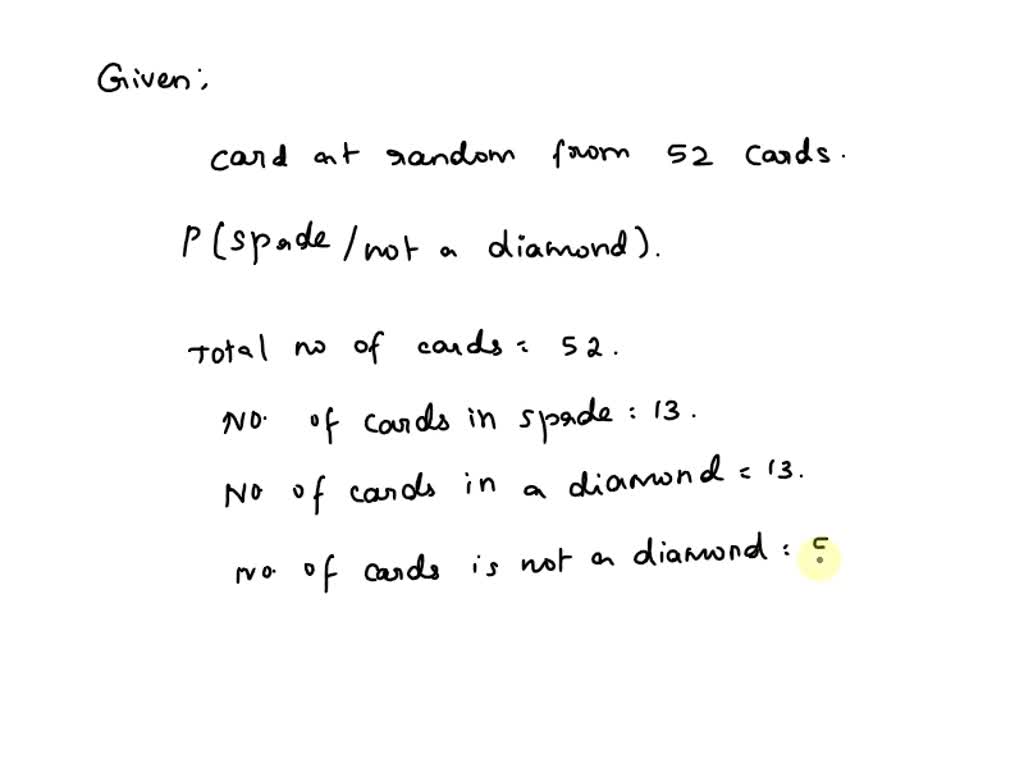 Given:
card at random from 52 cards.
P(spade/not a diamond).
Total no of cards = 52.
No. of cards in spade = 13.
No of cards in a diamond = 13.
no. of cards is not a diamond = 5